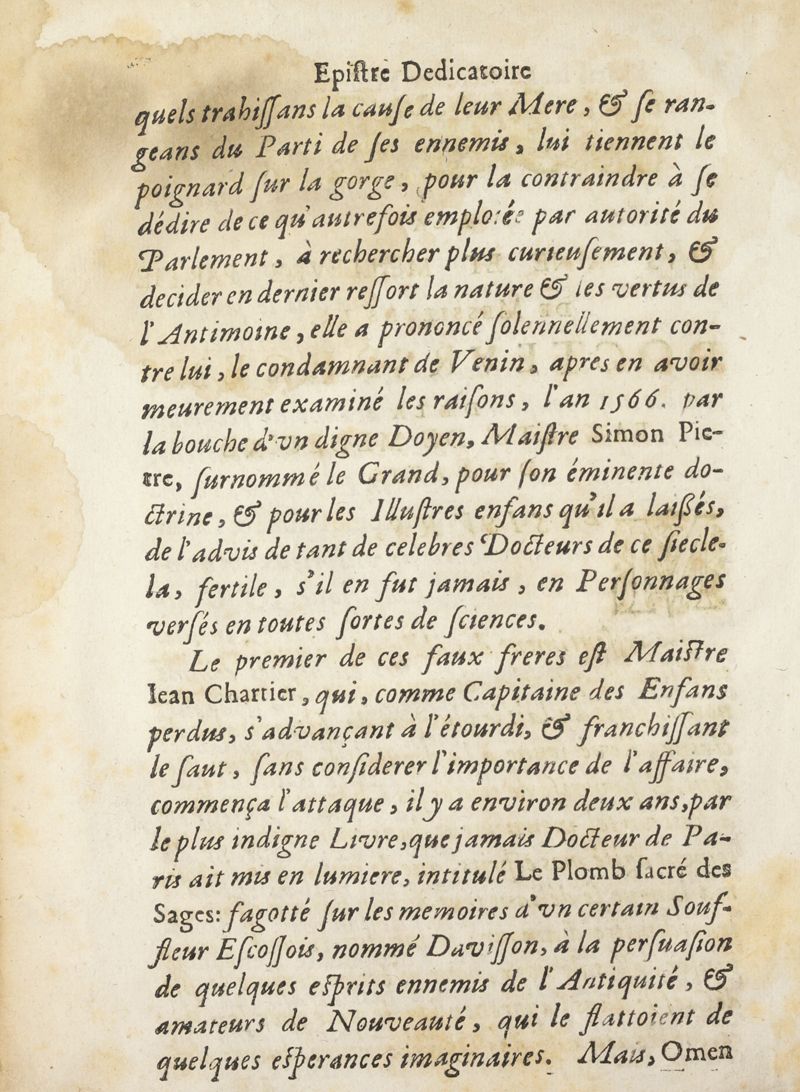 Epiſtre Dedicatoire
quels trahiſſans la cauſe de leur Mere, & ſe ran-
geans du Parti de ſes ennemis, lui tiennent le
poignard ſur la gorge, pour la contraindre à ſe
dédire de ce qu'autrefois emploiée par autorité du
Parlement, à rechercher plus curieuſement, &
decider en dernier reſſort la nature & les vertus de
l'Antimoine, elle a prononcé ſolennellement con-
tre lui, le condamnant de Venin, apres en avoir
meurement examiné les raiſons, l'an 1566. par
la bouche d'vn digne Doyen, Maiſtre Simon Pie-
tre, ſurnommé le Grand, pour ſon éminente do-
ctrine, & pour les Illuſtres enfans qu'il a laißés,
de l'advis de tant de celebres Docteurs de ce ſiecle-
la, fertile, s'il en fut jamais, en Perſonnages
verſés en toutes ſortes de ſciences.
Le premier de ces faux freres eſt Maiſtre
Iean Chartier, qui, comme Capitaine des Enfans
perdus, s'advançant à l'étourdi, & franchiſſant
le ſaut, ſans conſiderer l'importance de l'affaire,
commença l'attaque, il y a environ deux ans, par
le plus indigne Livre, que jamais Docteur de Pa-
ris ait mis en lumiere, intitulé Le Plomb ſacré des
Sages: fagotté ſur les memoires d'vn certain Souf-
fleur Eſcoſſois, nommé Daviſſon, à la perſuaſion
de quelques eſprits ennemis de l'Antiquité, &
amateurs de Nouveauté, qui le flattoient de
quelques eſperances imaginaires. Mais, Omen